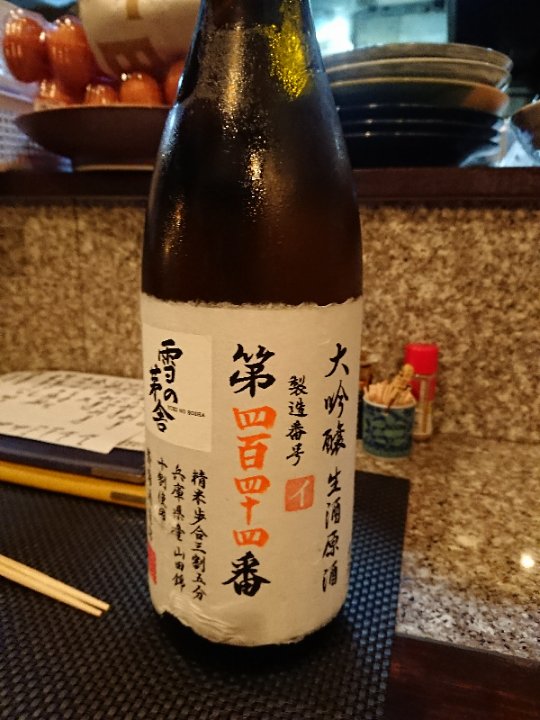 大吟醸 生酒原酒
製造番号
イ
第四百四十四番
雪の茅舎
YUKI NO BOSHA
精米歩合三割五分
兵庫県産 山田錦
十割使用